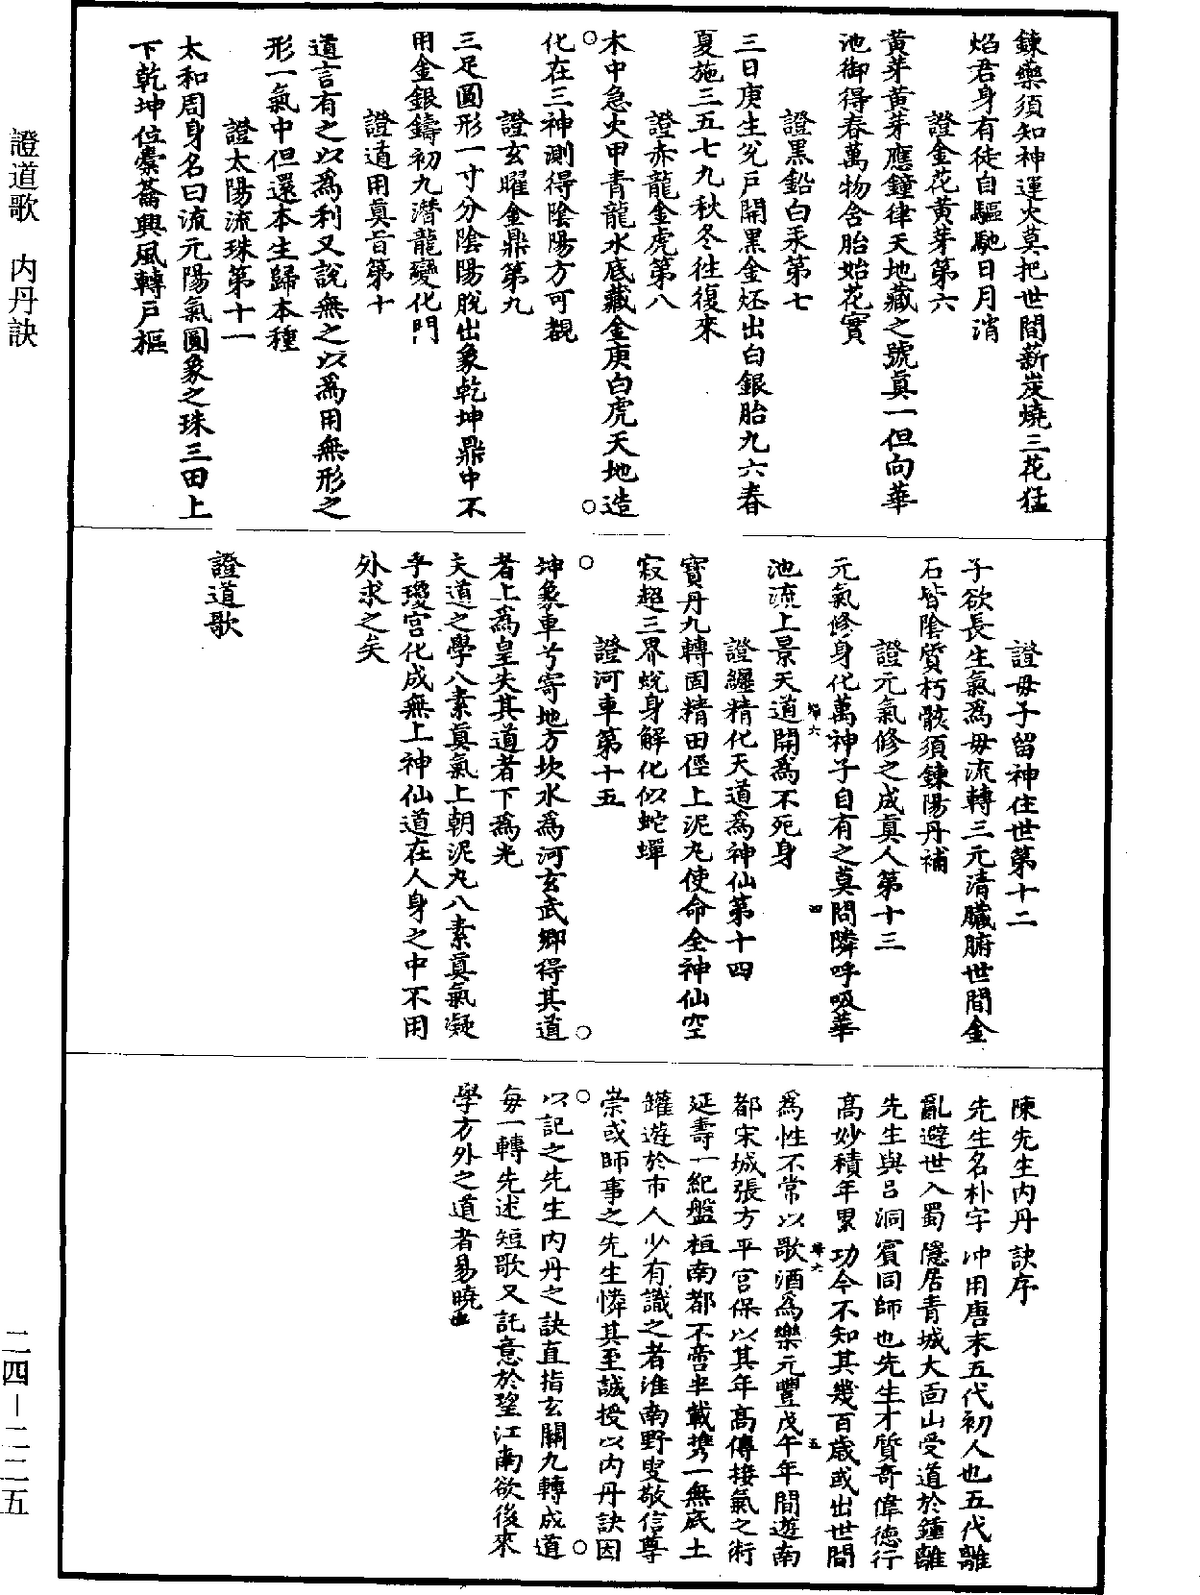 鍊藥須知神運火莫把世間薪炭燒三花猛
焰君身有徒自驅馳日月消
證金花黃芽第六
黃芽黃芽應鐘律天地藏之號真一但向華
池御得春萬物含胎始花實
證黑鉛白汞第七
三日庚生兌戶開黑金烝出白銀胎九六春
夏施三五七九秋冬往復來
證赤龍金虎第八
木中急火甲青龍水底藏金庚白虎天地造
化在三神測得陰陽方可覩
證玄曜金鼎第九
三足圓形一寸分陰陽脫出象乾坤鼎中不
用金銀鑄初九潛龍變化門
證道用真旨第十
道言有之以為利又說無之以為用無形之
形一氣中但還本生歸本種
證太陽流珠第十一
太和周身名曰流元陽氣圓象之珠三田上
下乾坤位橐籥興風轉戶樞
證母子留神住世第十二
子欲長生氣為母流轉三元清臟腑世間金
石皆陰質朽骸須鍊陽丹補
證元氣修之成真人第十三
元氣修身化萬神子自有之莫問隣呼吸華
池流上景天道開為不死身
證纏精化天道為神仙第十四
寶丹九轉固精田徑上泥丸使命全神仙空
寂超三界蛻身解化似蛇蟬
證河車第十五
坤象車兮寄地方坎水為河玄武鄉得其道
者上為皇失其道者下為光
夫道之學八素真氣上朝泥丸八素真氣凝
乎瓊宮化成無上神仙道在人身之中不用
外求之矣
證道歌
陳先生內丹訣序
先生名朴字冲用唐末五代初人也五代離
亂避世入蜀隱居青城大面山受道於鍾離
先生與呂洞賓同師也先生才質奇偉德行
高妙積年累功今不知其幾百歲或出世間
為性不常以歌酒為樂元豐戊午年間遊南
都宋城張方平宮保以其年高傳接氣之術
延壽一紀盤桓南都不啻半載携一無底土
罐遊於市人少有識之者淮南野叟敬信尊
崇或師事之先生憐其至誠授以內丹訣因
以記之先生內丹之訣直指玄關九轉成道
每一轉先述短歌又託意於望江南欲後來
學方外之道者易曉
證道歌　內丹訣
二四－二二五